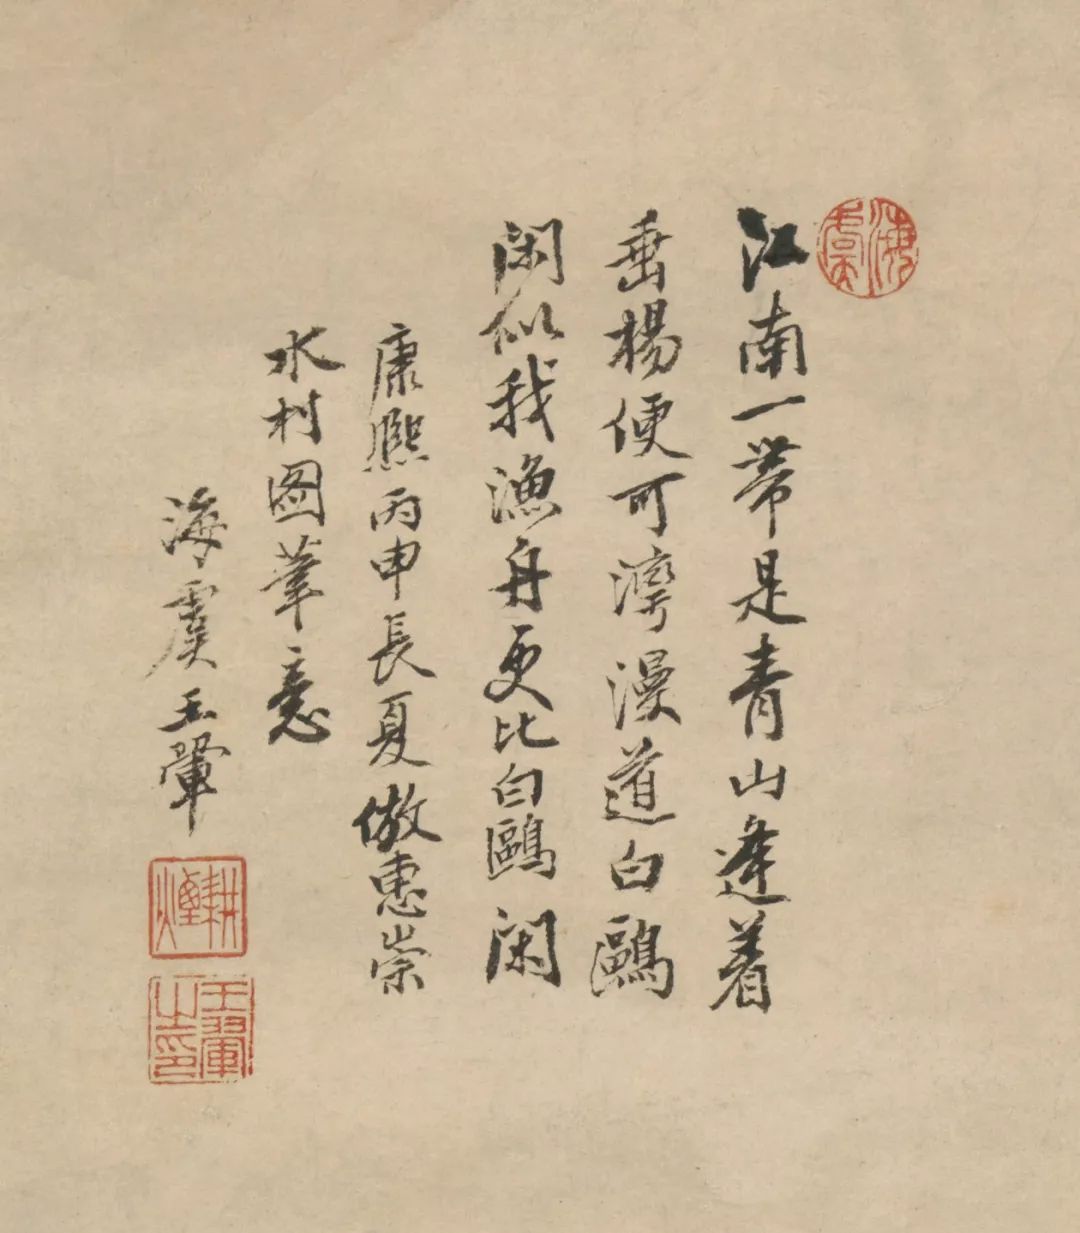 海虞
江南一帶是青山逢着
垂楊便可灣漫道白鷗
閑似我漁舟更比白鷗閑
康熙丙申長夏倣惠崇
水村図筆意
海虞王翬
耕煙
王翬之印